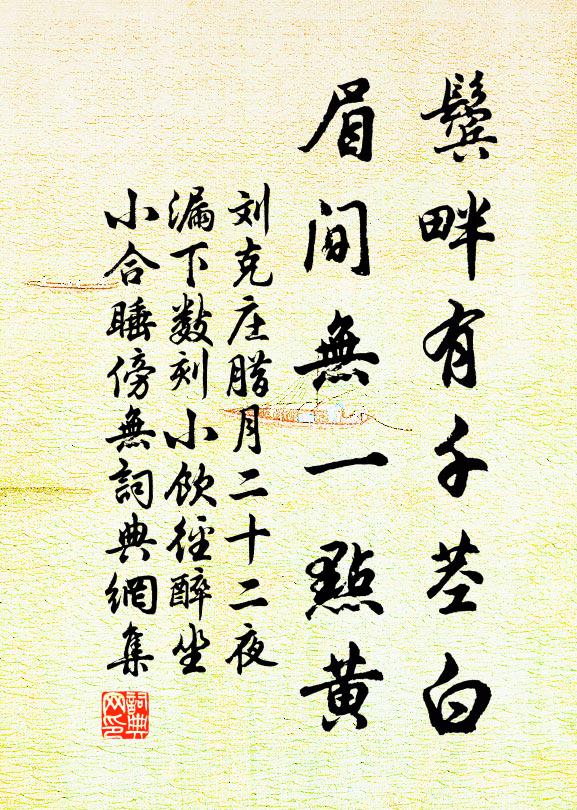 鬓畔有千茎白
眉间無一點黄
刘克庄腊月二十二夜
漏下数刻小饮径醉坐
小合睡傍無詞典網集
詞典网印